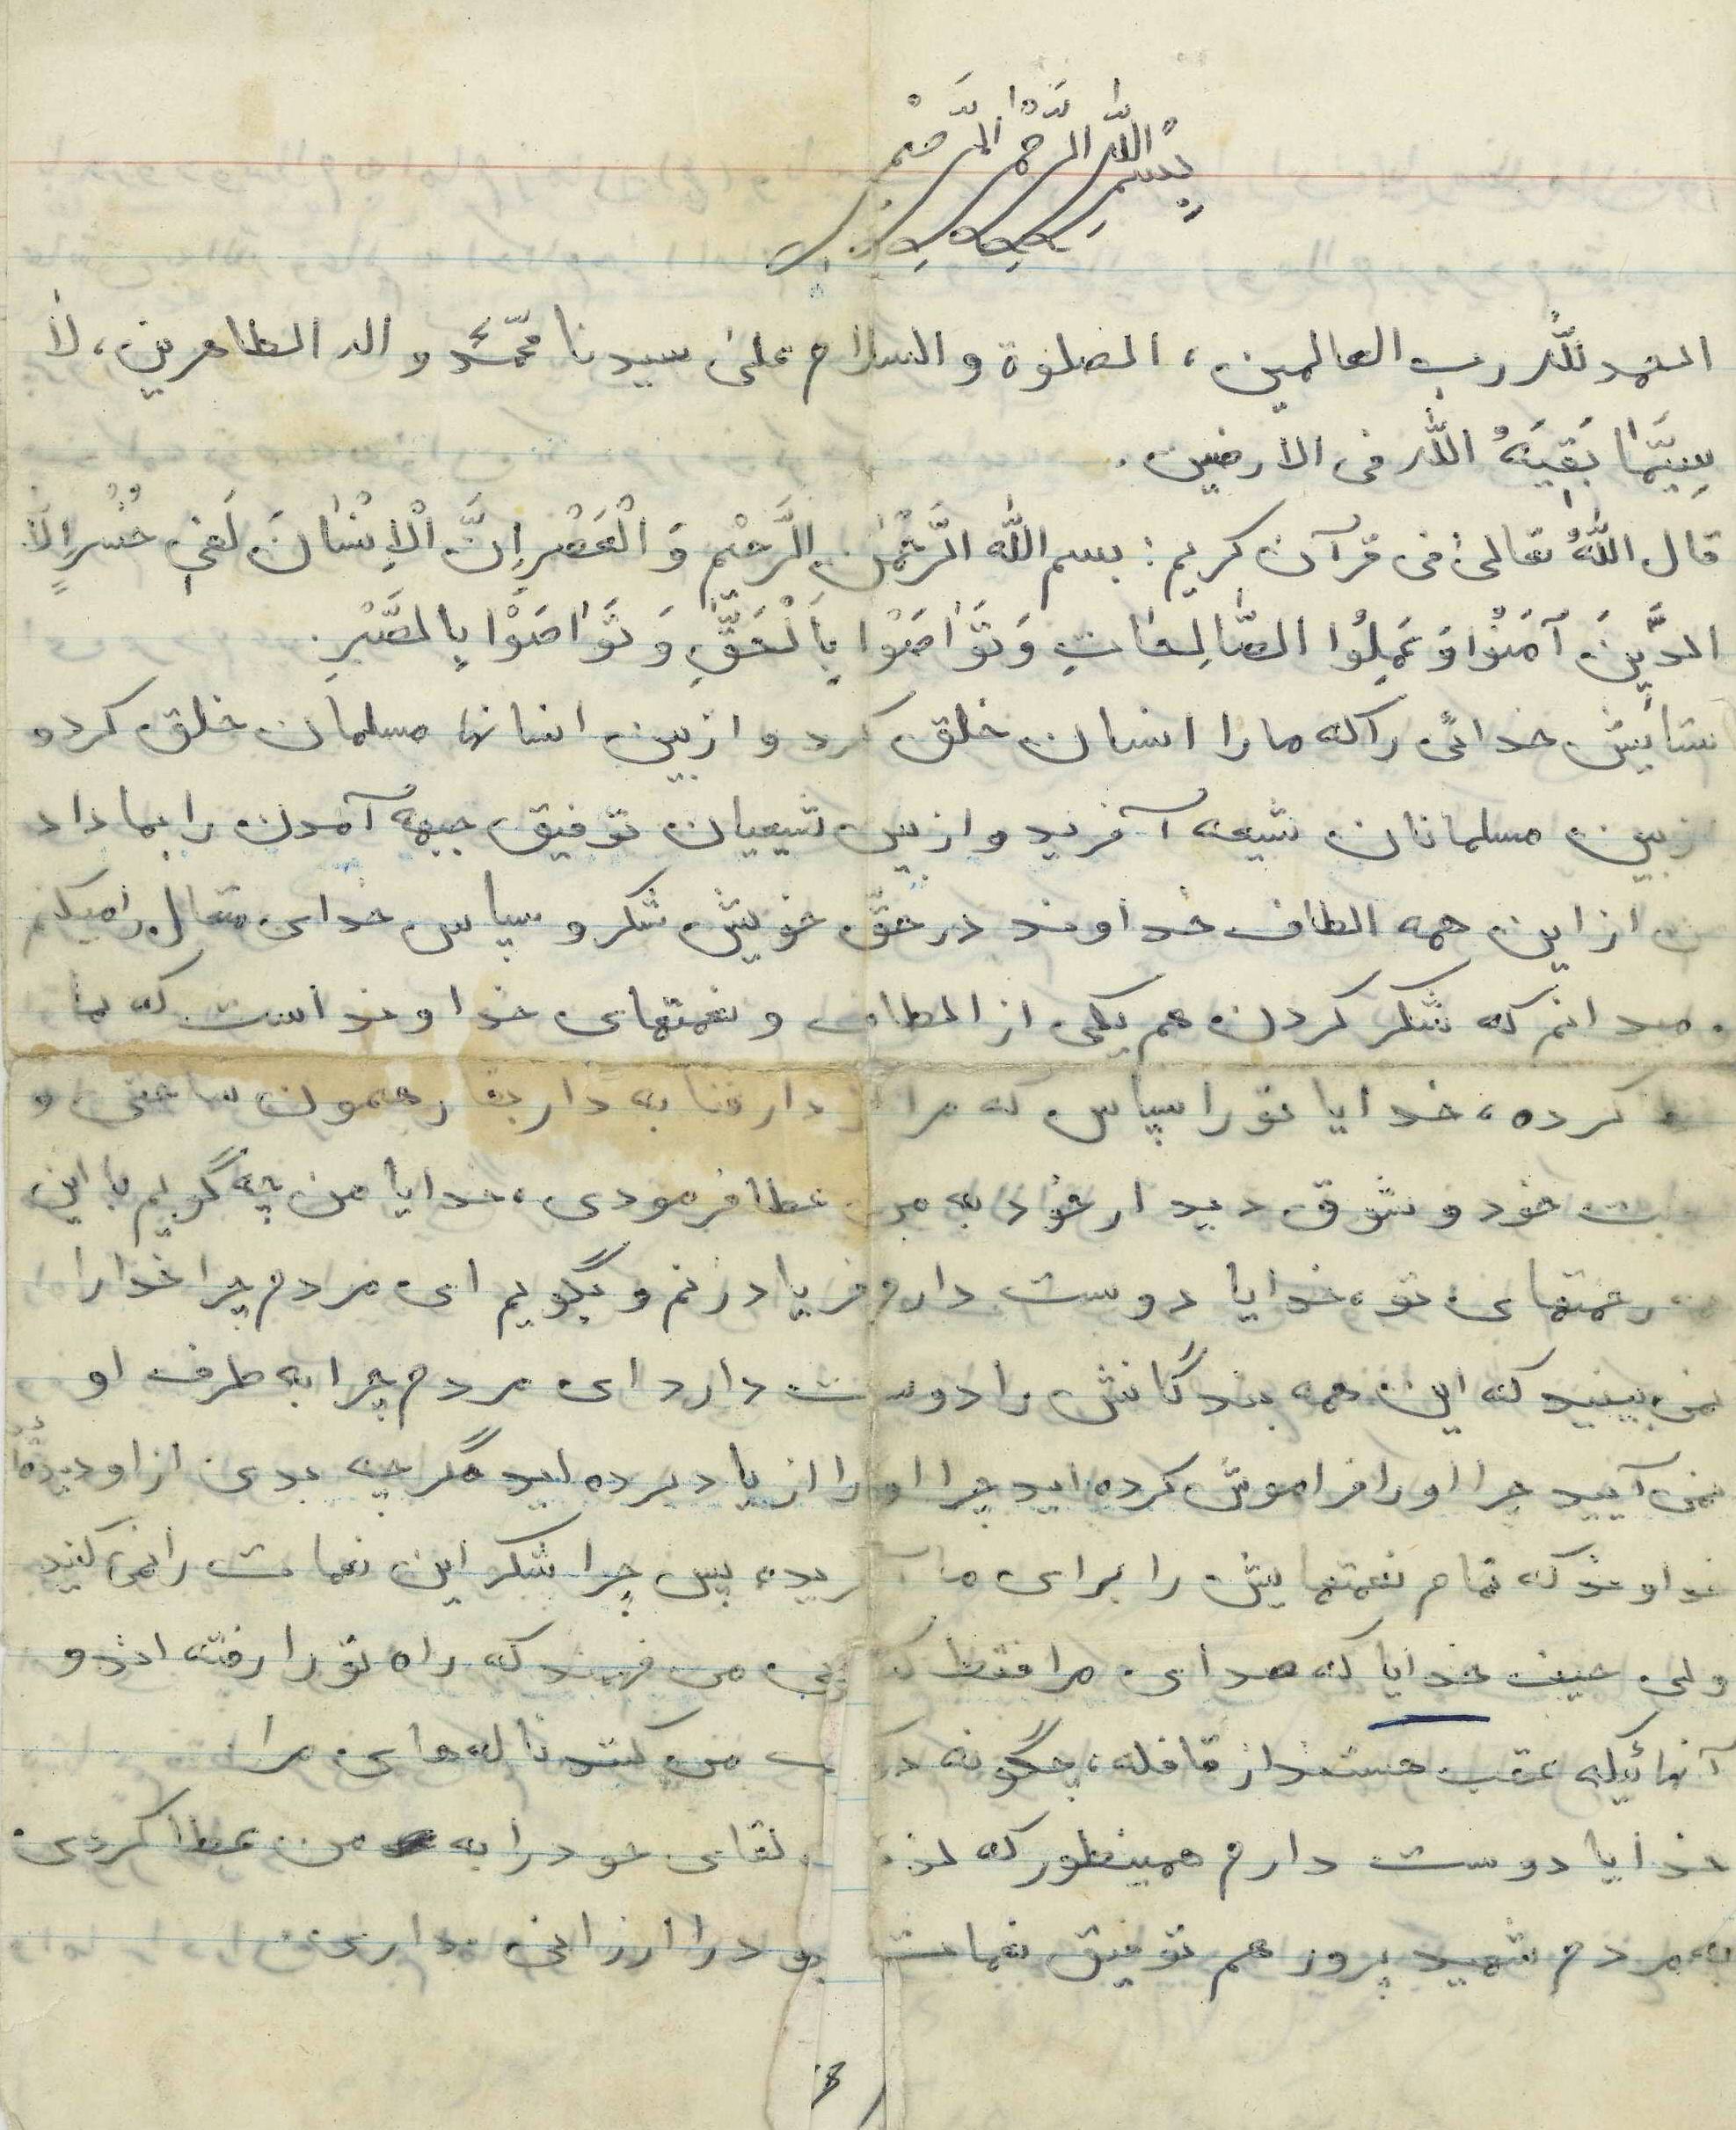 بِسْمِ اللهِ الرَّحْمٰنِ الرَّحیمْ
الحمد للّٰه رب العالمین، الصلوة والسلام علیٰ سیدنا محمّد و اله الطاهرین، لاٰ
سِیَّمٰا بَقِیَهُ اللّٰه فی الارضین.
قال اللّٰهُ تعالیٰ فی قرآن کریم: بسم اللّٰه الرَّحْمٰن الرَّحیْم وَ الْعَصْرِ اِنَّ الْاِنْسٰانَ لَفی خُسْرٍ اِلاَّ
الذَّینَ آمَنُوا وَ عَمِلُوا الصّٰالِحٰاتِ وَ تَوٰاصَوْا بِالْحَقِّ وَ تَوٰاصَوْا بِالصَّبْرِ.
ستایش خدائی را که ما را انسان خلق کرد و از بین انسانها مسلمان خلق کرد و
از بین مسلمانان شیعه آفرید و از بین شیعیان توفیق جبهه آمدن را بما داد
من از این همه الطاف خداوند در حقّ خویش شکر و سپاس خدای متعال را میکنم
و میدانم که شکر کردن هم یکی از الطاف و نعمتهای خداوند است که بما
عطا کرده، خدایا تو را سپاس که مرا از دار فنا به دار بقا رهمون ساختی و
خود و شوق دیدار خود به من عطا فرمودی، خدایا من چه گویم با این
همه رحمتهای تو، خدایا دوست دارم فریاد زنم و بگویم ای مردم چرا خدا را
نمی بینید که این همه بندگانش را دوست دارد ای مردم چرا به طرف او
نمی آیید چرا او را فراموش کرده اید چرا او را از یاد برده اید مگر چه بدی از او دیده‌اید
خداوند که تمام نعمتهایش را برای ما آفریده پس چرا شکر این نعمات را نمی کنید
ولی حیف خدایا که صدای مرا فقط می فهمند که راه تو را رفته اند و
آنهائیکه عقب هستند از قافله، چگونه می کنند ناله های مرا
خدایا دوست دارم همینطور که لقای خود را به من عطا کردی
به مردم شهید پرور هم توفیق نعمات خود را ارزانی بداری